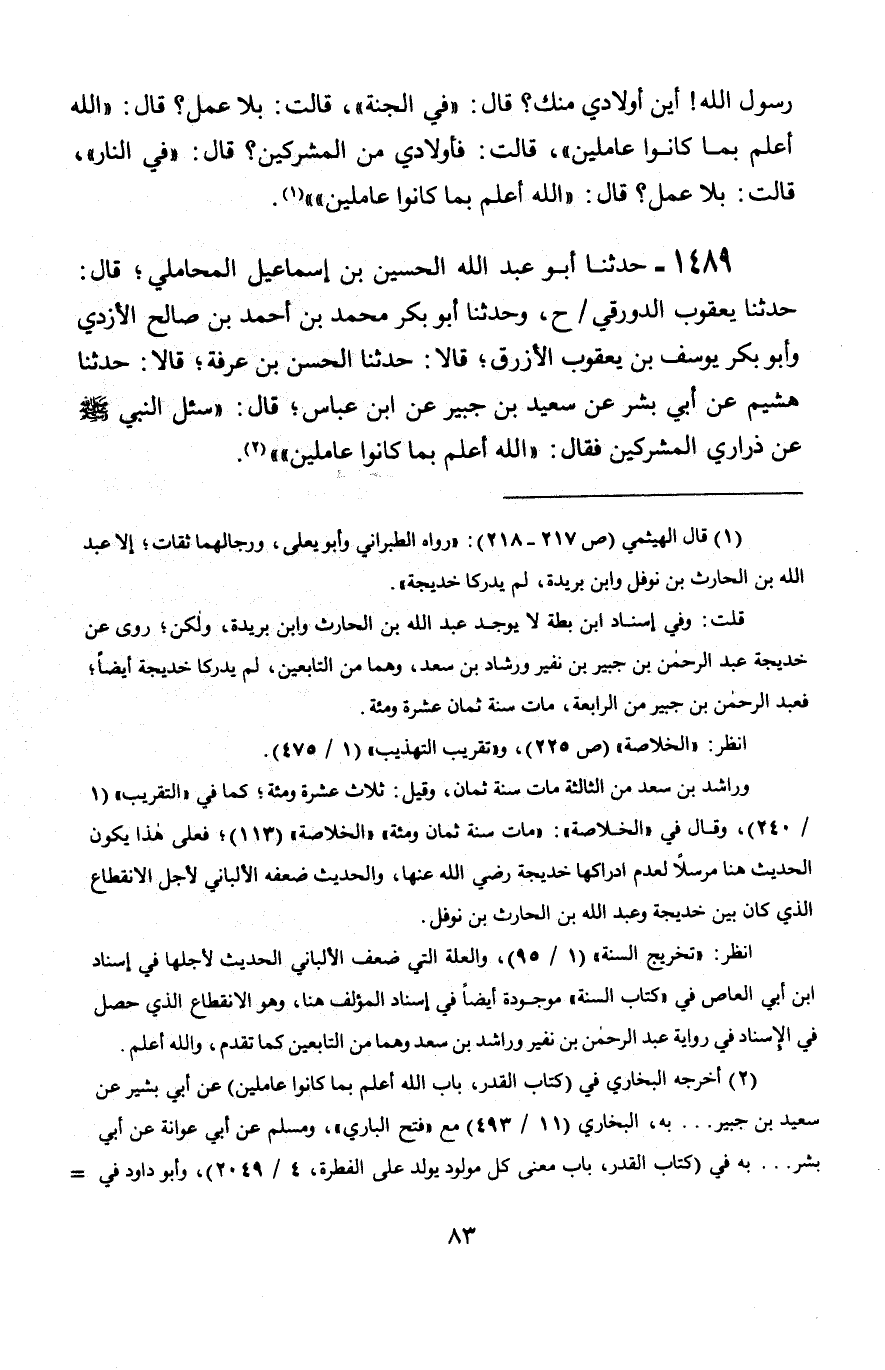 رسول الله! أين أولادي منك؟ قال: «في الجنة»، قالت: بلا عمل؟ قال: «الله
أعلم بمـا كانـوا عاملين»، قالت: فأولادي من المشركين؟ قال: «في النار»،
قالت: بلا عمل؟ قال: «الله أعلم بما كانوا عاملين»»(١).
١٤٨٩ - حدثنـا أبـو عبد الله الحسين بن إسماعيل المحاملي؛ قال:
حدثنا يعقوب الدورقي/ ح، وحدثنا أبو بكر محمد بن أحمد بن صالح الأزدي
وأبو بكر يوسف بن يعقوب الأزرق؛ قالا: حدثنا الحسن بن عرفة؛ قالا: حدثنا
هشيم عن أبي بشر عن سعيد بن جبير عن ابن عباس؛ قال: «سئل النبي ﷺ
عن ذراري المشركين فقال: «الله أعلم بما كانوا عاملين»»(٢).
(١) قال الهيثمي (ص ٢١٧ - ٢١٨): «رواه الطبراني وأبو يعلى، ورجالهما ثقات؛ إلا عبد
الله بن الحارث بن نوفل وابن بريدة، لم يدركا خديجة».
قلت: وفي إسنـاد ابن بطة لا يوجـد عبد الله بن الحارث وابن بريدة، ولٰكن؛ روى عن
خديجة عبد الرحمٰن بن جبير بن نفير ورشاد بن سعد، وهما من التابعين، لم يدركا خديجة أيضاً؛
فعبد الرحمٰن بن جبير من الرابعة، مات سنة ثمان عشرة ومئة.
انظر: «الخلاصة» (ص ٢٢٥)، و«تقريب التهذيب» (١ / ٤٧٥).
وراشد بن سعد من الثالثة مات سنة ثمان، وقيل: ثلاث عشرة ومئة؛ كما في «التقريب» (١
/ ٢٤٠)، وقـال في «الخـلاصة»: «مات سنة ثمان ومئة» «الخلاصة» (١١٣)؛ فعلى هٰذا يكون
الحديث هنا مرسلاً لعدم ادراكها خديجة رضي الله عنها، والحديث ضعفه الألباني لأجل الانقطاع
الذي كان بين خديجة وعبد الله بن الحارث بن نوفل.
انظر: «تخريج السنة» (١ / ٩٥)، والعلة التي ضعف الألباني الحديث لأجلها في إسناد
ابن أبي العاص في «كتاب السنة» موجـودة أيضاً في إسناد المؤلف هنا، وهو الانقطاع الذي حصل
في الإسناد في رواية عبد الرحمٰن بن نفير وراشد بن سعد وهما من التابعين كما تقدم، والله أعلم.
(٢) أخرجه البخاري في (كتاب القدر، باب الله أعلم بما كانوا عاملين) عن أبي بشير عن
سعيد بن جبير... به، البخاري (١١ / ٤٩٣) مع «فتح الباري»، ومسلم عن أبي عوانة عن أبي
بشر... به في (كتاب القدر، باب معنى كل مولود يولد على الفطرة، ٤ / ٢٠٤٩)، وأبو داود في =
٨٣